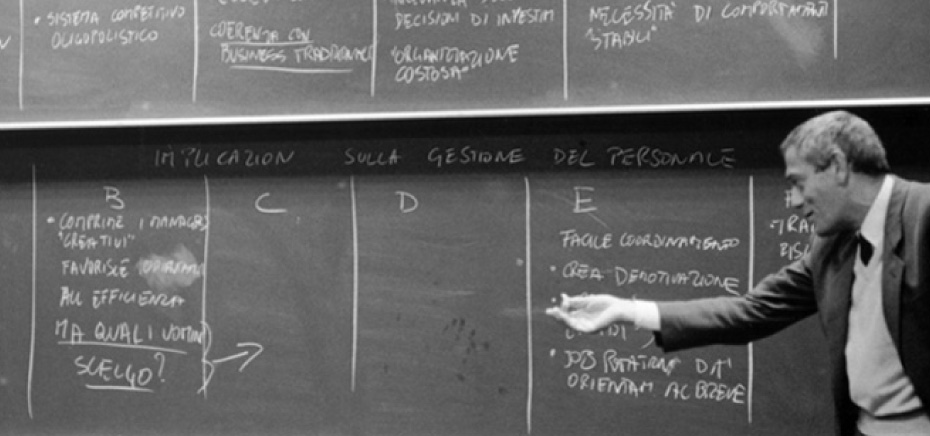 • SISTEMA COMPETITIVO
OLIGOPOLISTICO
COERENZA CON
BUSINESS TRADIZIONALE
DECISIONI DI INVESTIM
"ORGANIZZAZIONE
COSTOSA"
NECESSITÀ DI COMPORTAMENTI
"STABILI"
IMPLICAZIONI SULLA GESTIONE DEL PERSONALE
B
• COMPRIME I MANAGERS
"CREATIVI"
FAVORISCE
ALL EFFICIENZA
MA QUALI UOMINI
SCELGO?
C
D
E
FACILE COORDINAMENTO
• CREA DEMOTIVAZIONE
• JOB ROTATION DÀ
ORIENTAM AL BREVE